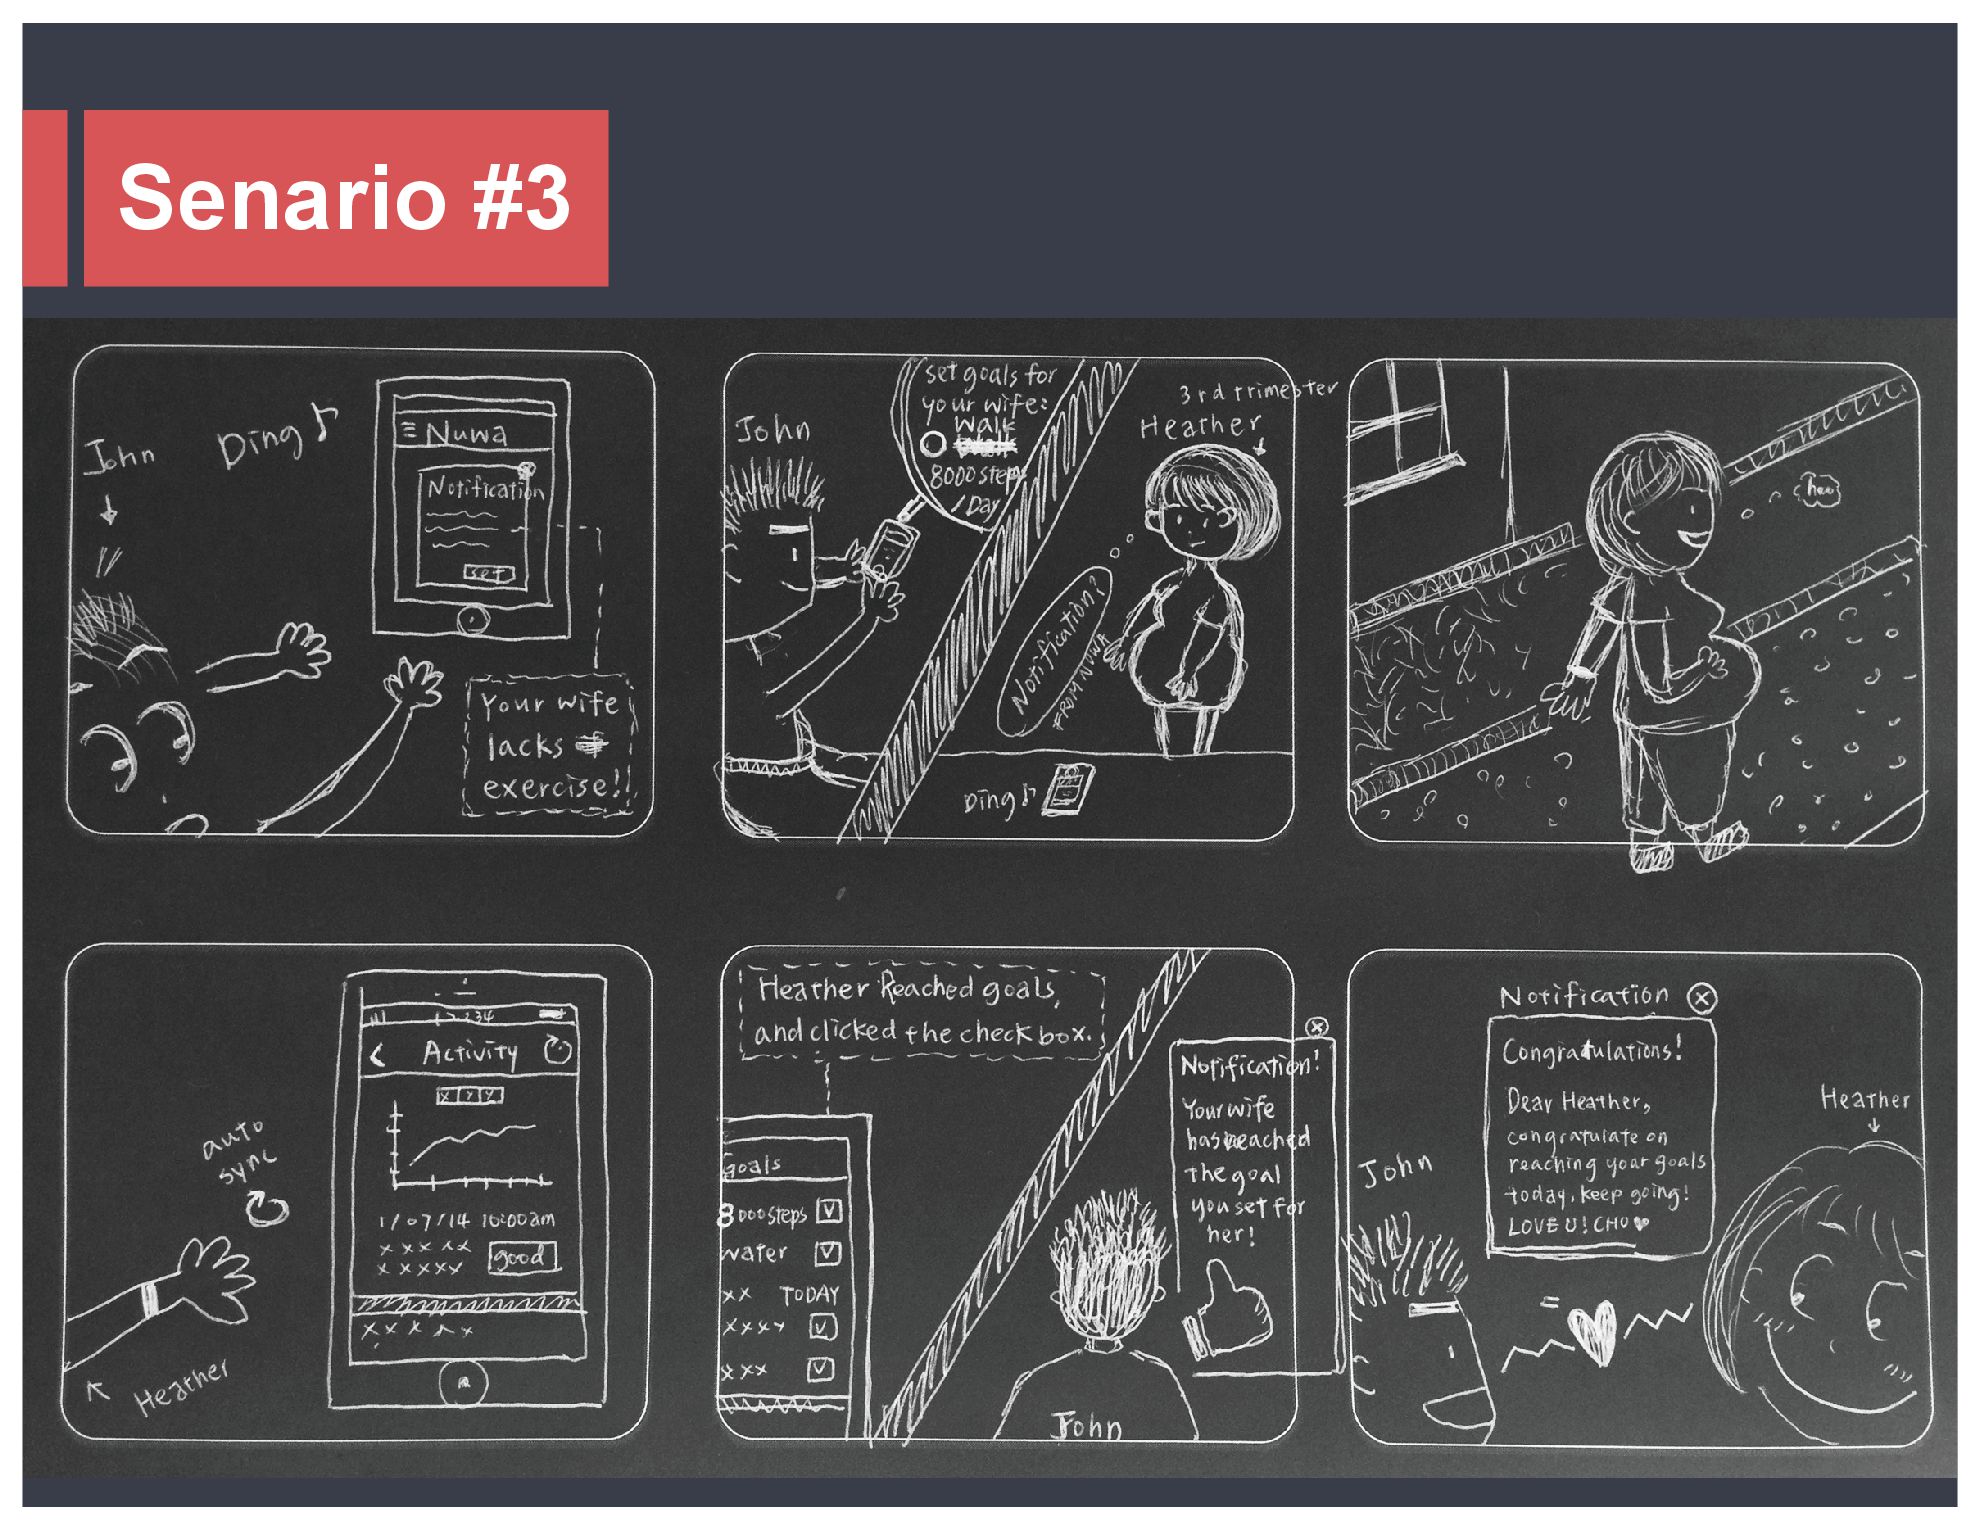 Senario #3
John
Ding
Nuwa
Notification
set
Your wife
lacks
exercise!!
John
set goals for
your wife:
Walk
8000 steps
/ Day
3rd trimester
Heather
Notification?
FROM NUWA
Ding
auto
sync
Heather
Activity
x y z
1/07/14 10:00am
x x x x x
x x x x x
good
x x x x x
Heather Reached goals,
and clicked the check box.
Goals
8000 steps
water
x x TODAY
x x x y
x x x
Notification!
Your wife
has reached
the goal
you set for
her!
John
Notification
Congratulations!
Dear Heather,
congratulate on
reaching your goals
today, keep going!
LOVE U! CHU
John
Heather